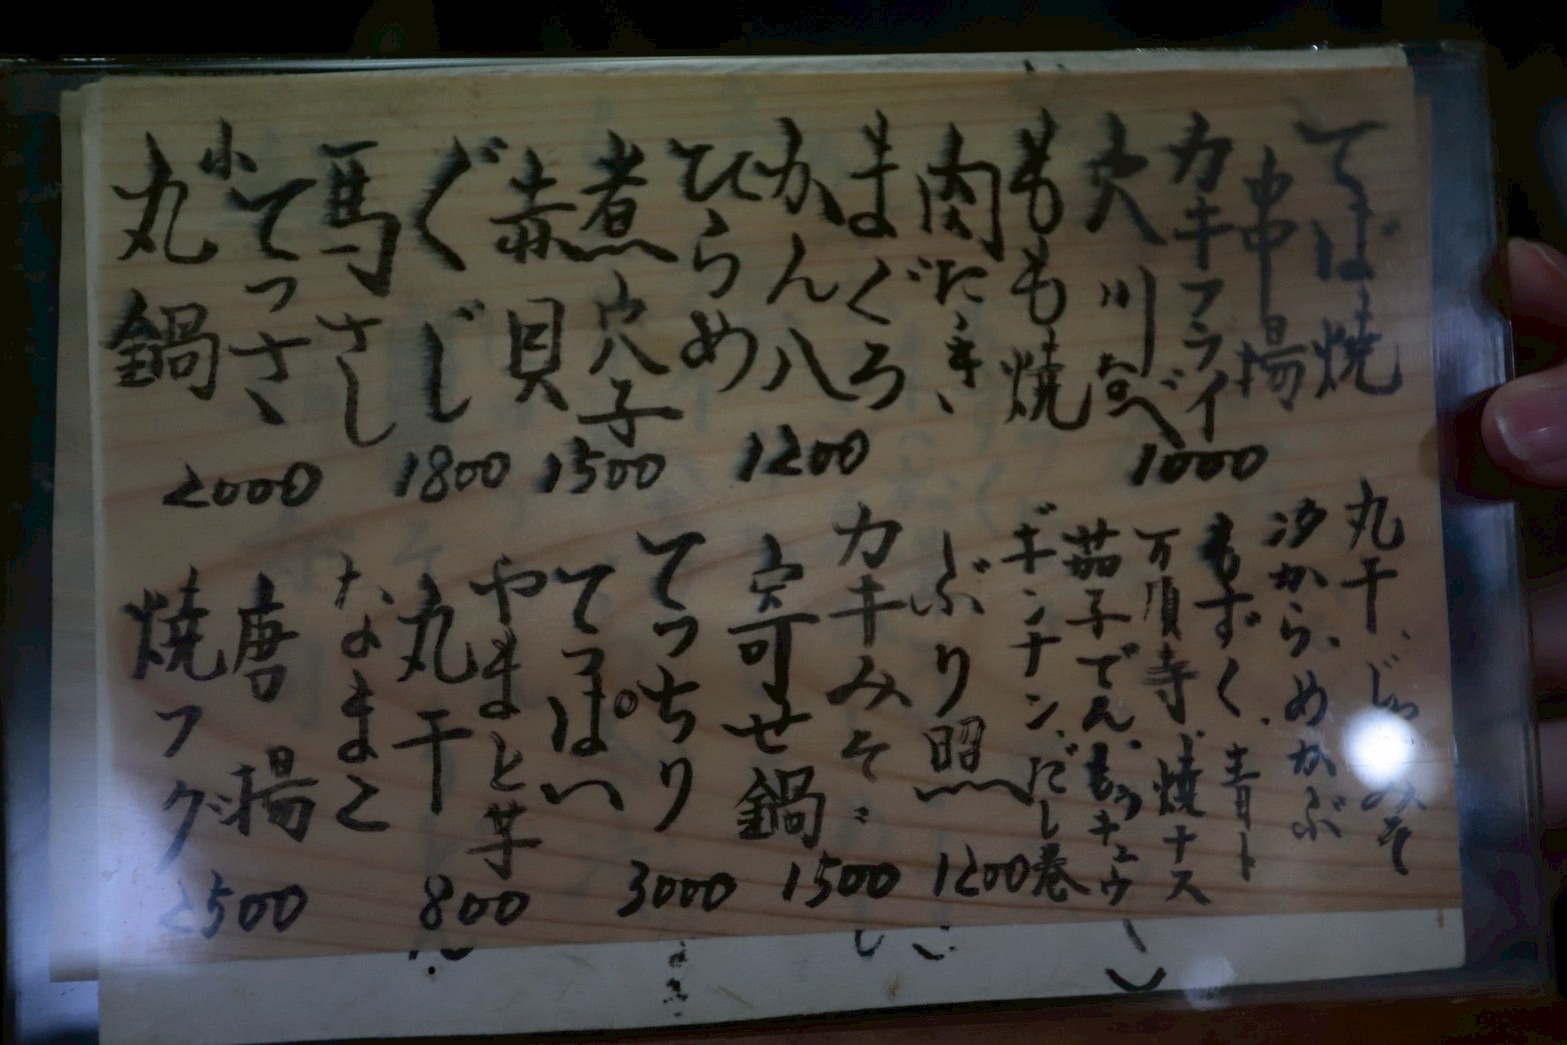 てば焼
串揚
カキフライ
穴川なべ
1000
もも焼
肉にぎり
まぐろ
かん八
1200
ひらめ
煮穴子
1500
赤貝
ぐじ
1800
馬さし
小てっさ
2000
丸鍋
丸干、じゃこみそ
汐から、めかぶ
もずく、青ト
万願寺、焼ナス
茄子でん、もろキュウ
ギンナン、だし巻
ぶり照
1200
カキみそ
寄せ鍋
1500
てっちり
3000
てっぱい
やまと芋
丸干
800
なまこ
唐揚
焼フグ
2500